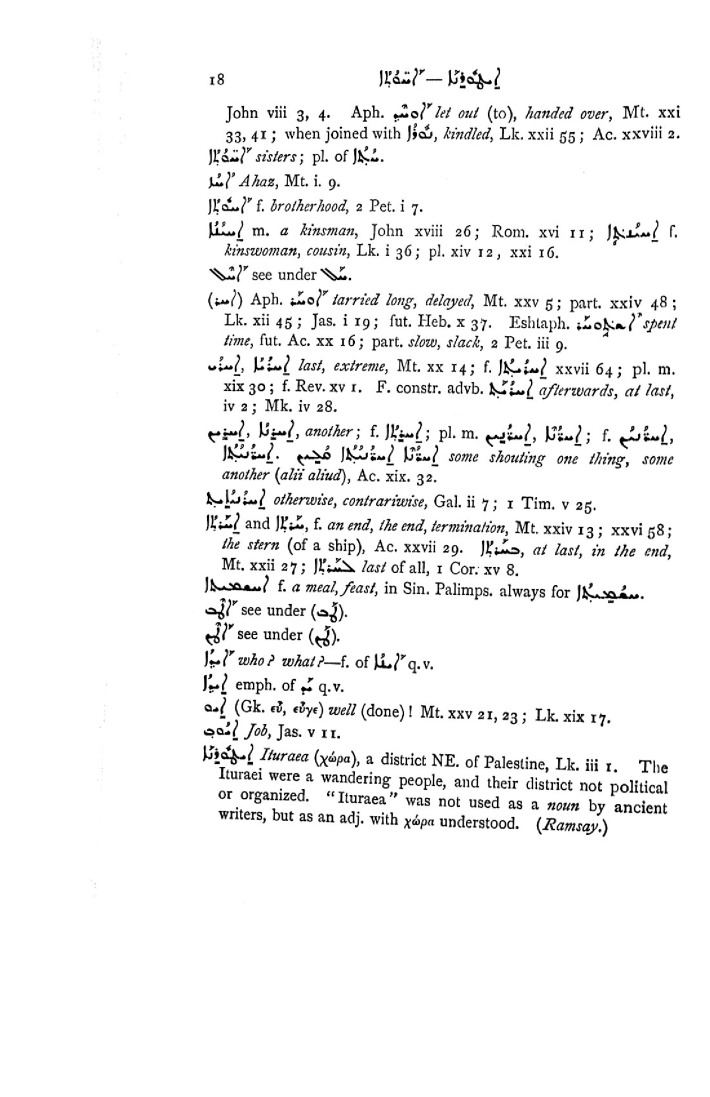 18 ܐܚܘ̈ܬܐ — ܐܝܛܘܪܝܐ
John viii 3, 4. Aph. ܐܘܚܕ let out (to), handed over, Mt. xxi
33, 41; when joined with ܢܘܪܐ, kindled, Lk. xxii 55; Ac. xxviii 2.
ܐܚܘ̈ܬܐ sisters; pl. of ܚܬܐ.
ܐܚܙ Ahaz, Mt. i. 9.
ܐܚܘܬܐ f. brotherhood, 2 Pet. i 7.
ܐܚܝܢܐ m. a kinsman, John xviii 26; Rom. xvi 11; ܐܚܝܢܬܐ f.
kinswoman, cousin, Lk. i 36; pl. xiv 12, xxi 16.
see under
(ܐܚܪ) Aph. ܐܘܚܪ tarried long, delayed, Mt. xxv 5; part. xxiv 48;
Lk. xii 45; Jas. i 19; fut. Heb. x 37. Eshtaph. ܐܫܬܘܚܪ spent
time, fut. Ac. xx 16; part. slow, slack, 2 Pet. iii 9.
ܐܚܪܝ, ܐܚܪܝܐ last, extreme, Mt. xx 14; f. ܐܚܪܝܬܐ xxvii 64; pl. m.
xix 30; f. Rev. xv 1. F. constr. advb. ܐܚܪܝܬ afterwards, at last,
iv 2; Mk. iv 28.
ܐܚܪܝܢ, ܐܚܪܢܐ, another; f. ܐܚܪܬܐ; pl. m. ܐܚܪ̈ܢܝܢ, ܐܚܪ̈ܢܐ; f.
some shouting one thing, some
another (alii aliud), Ac. xix. 32.
ܐܚܪܢܐܝܬ otherwise, contrariwise, Gal. ii 7; 1 Tim. v 25.
ܐܚܪܬܐ and ܚܪܬܐ, f. an end, the end, termination, Mt. xxiv 13; xxvi 58;
the stern (of a ship), Ac. xxvii 29. ܒܚܪܬܐ, at last, in the end,
Mt. xxii 27; ܠܚܪܬܐ last of all, 1 Cor. xv 8.
ܐܚܫܡܝܬܐ f. a meal, feast, in Sin. Palimps. always for ܚܫܡܝܬܐ.
ܐܛܒ see under (ܛܒ).
see under
ܐܝܕܐ who? what?—f. of ܐܝܢܐ q.v.
ܐܝܕܐ emph. of ܝܕ q.v.
ܐܝܘ (Gk. εὖ, εὖγε) well (done)! Mt. xxv 21, 23; Lk. xix 17.
ܐܝܘܒ Job, Jas. v 11.
ܐܝܛܘܪܝܐ Ituraea (χώρα), a district NE. of Palestine, Lk. iii 1. The
Ituraei were a wandering people, and their district not political
or organized. "Ituraea" was not used as a noun by ancient
writers, but as an adj. with χώρα understood. (Ramsay.)